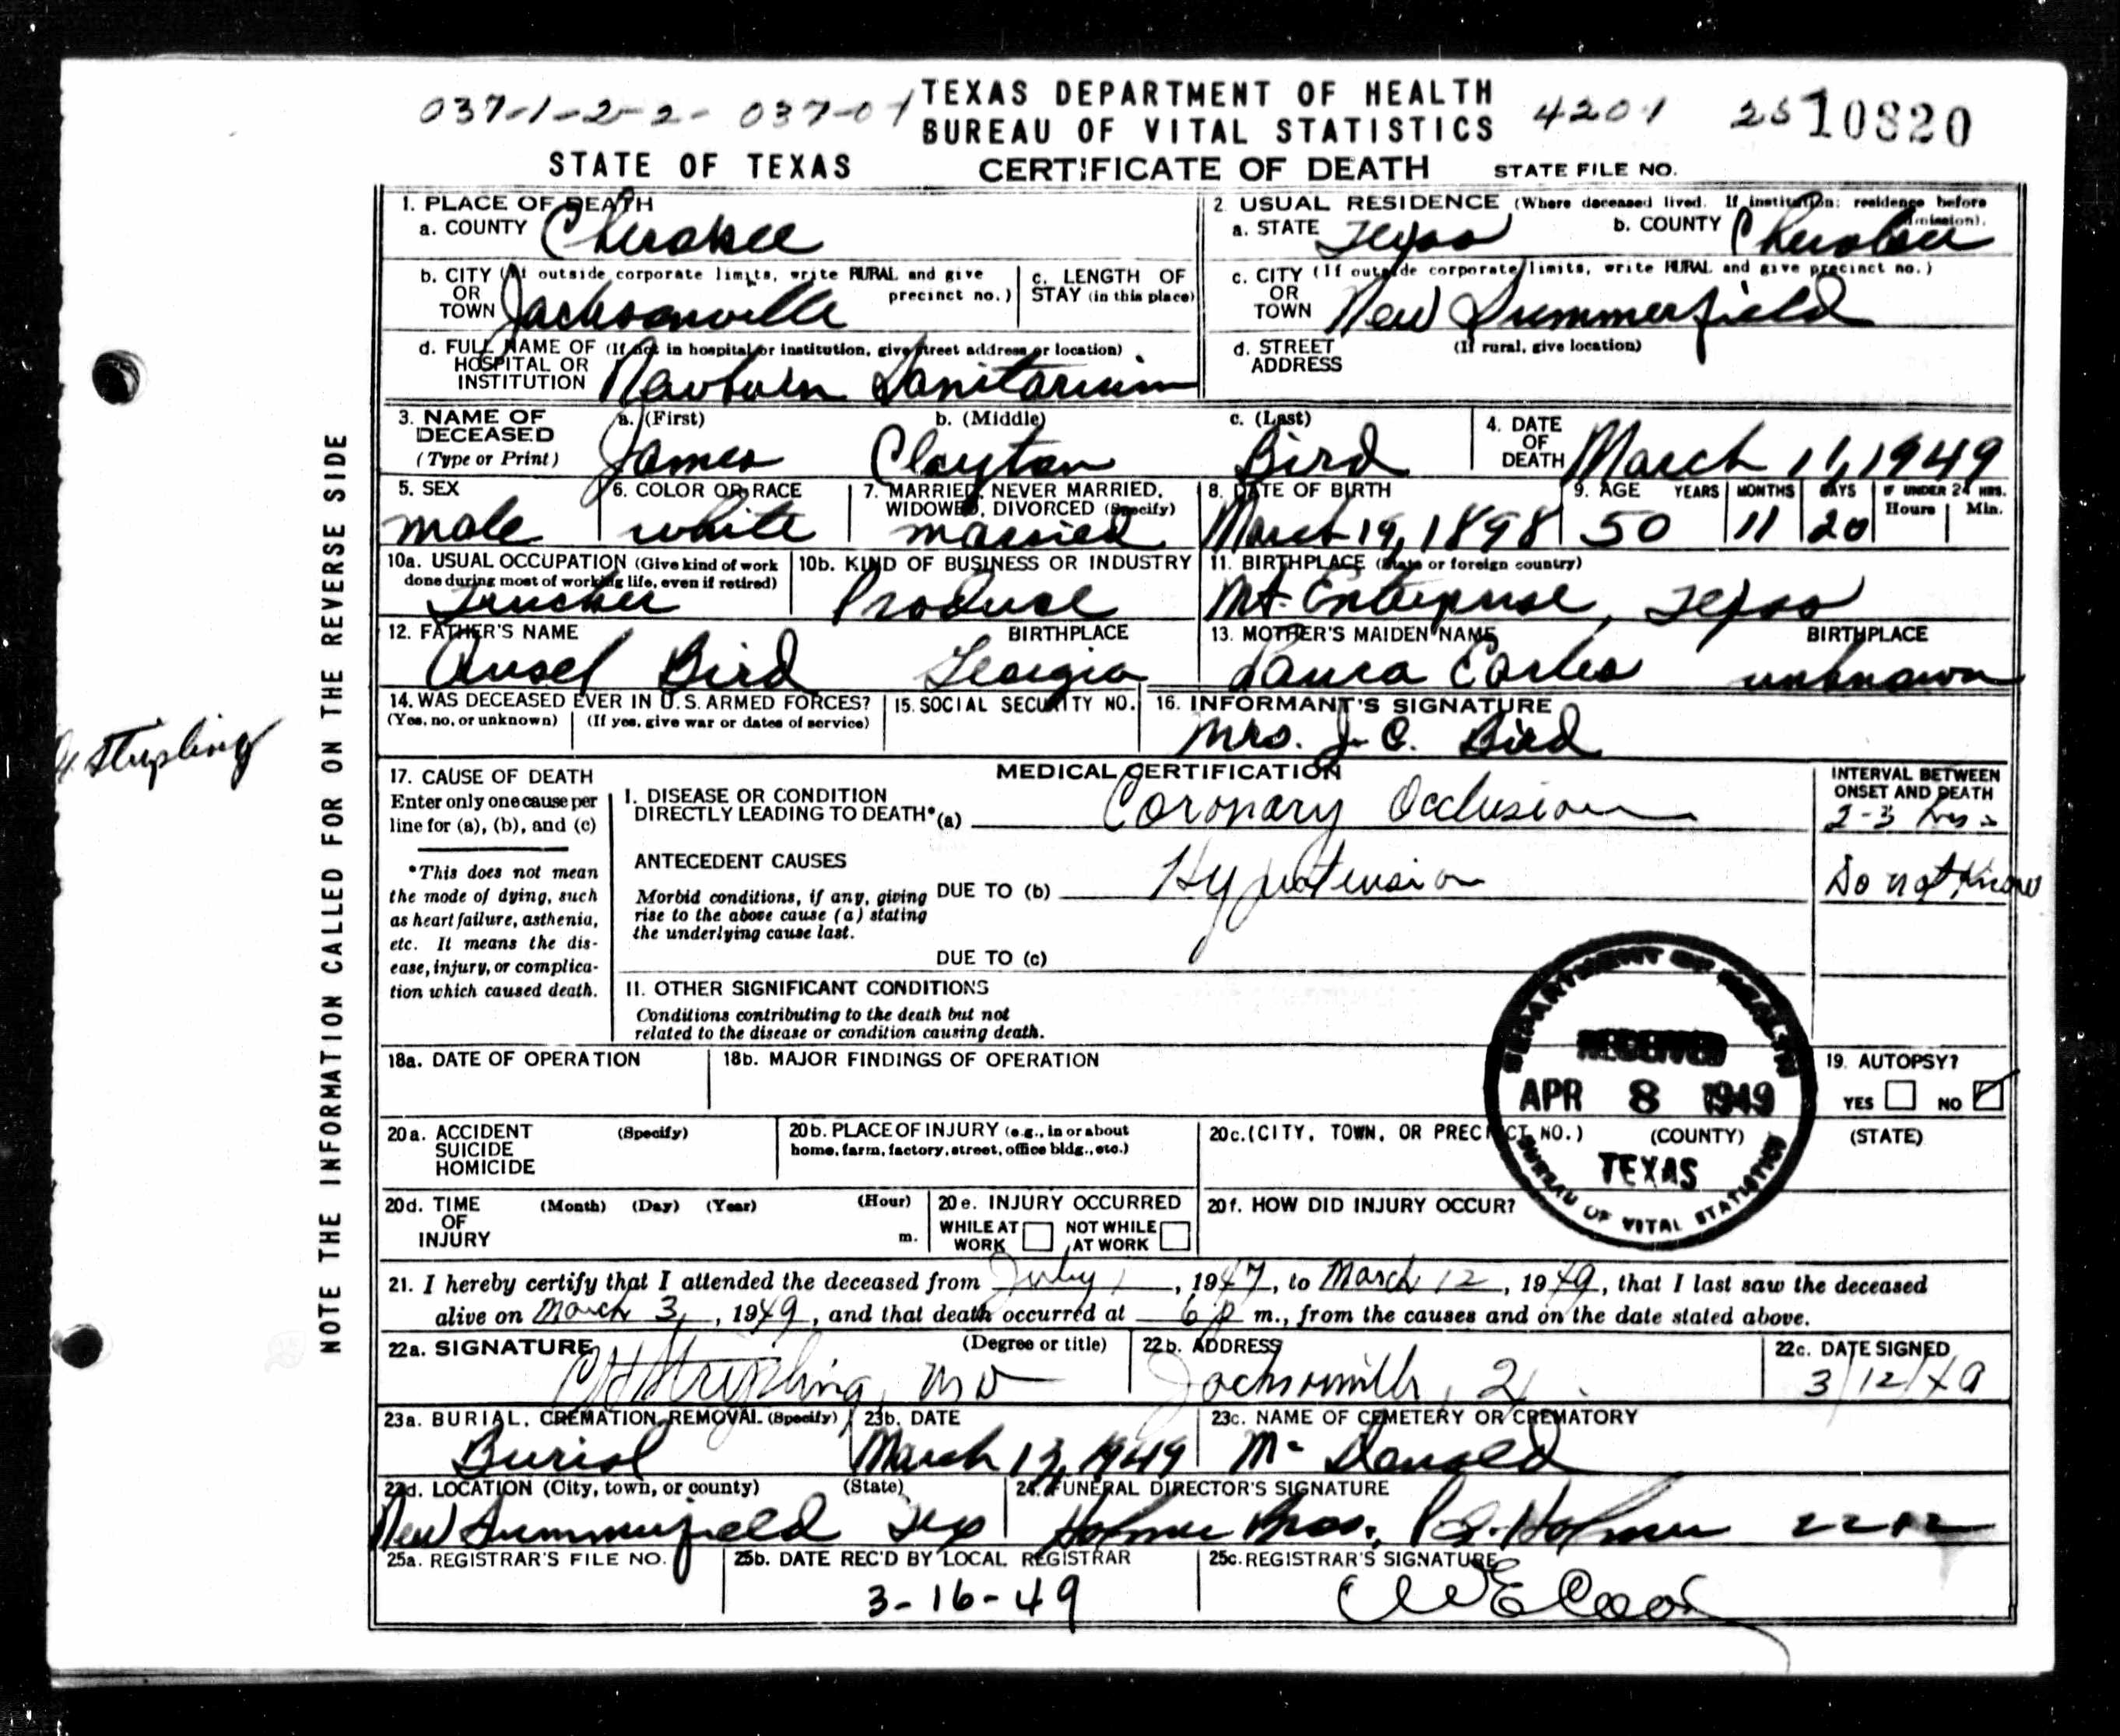 037-1-2-2- 037-01 TEXAS DEPARTMENT OF HEALTH 4201 25 10820
BUREAU OF VITAL STATISTICS
STATE OF TEXAS CERTIFICATE OF DEATH STATE FILE NO.
1. PLACE OF DEATH
a. COUNTY Cherokee
2 USUAL RESIDENCE (Where deceased lived. If institution: residence before admission).
a. STATE Texas b. COUNTY Cherokee
b. CITY (If outside corporate limits, write RURAL and give precinct no.)
OR
TOWN Jacksonville
c. LENGTH OF
STAY (in this place)
c. CITY (If outside corporate limits, write RURAL and give precinct no.)
OR
TOWN New Summerfield
d. FULL NAME OF (If not in hospital or institution, give street address or location)
HOSPITAL OR
INSTITUTION Sanitarium
d. STREET (If rural, give location)
ADDRESS
3. NAME OF a. (First) b. (Middle) c. (Last)
DECEASED
(Type or Print) James Clayton Bird
4. DATE
OF
DEATH March 11, 1949
5. SEX
male
6. COLOR OR RACE
white
7. MARRIED, NEVER MARRIED,
WIDOWED, DIVORCED (Specify)
married
8. DATE OF BIRTH
March 19, 1898
9. AGE YEARS MONTHS DAYS IF UNDER 24 HRS.
Hours Min.
50 11 20
10a. USUAL OCCUPATION (Give kind of work
done during most of working life, even if retired)
Trucker
10b. KIND OF BUSINESS OR INDUSTRY
Produce
11. BIRTHPLACE (State or foreign country)
Mt. Enterprise, Texas
12. FATHER'S NAME BIRTHPLACE
Ansel Bird Georgia
13. MOTHER'S MAIDEN NAME BIRTHPLACE
Laura Earles unknown
14. WAS DECEASED EVER IN U.S. ARMED FORCES?
(Yes, no, or unknown) (If yes, give war or dates of service)
15. SOCIAL SECURITY NO.
16. INFORMANT'S SIGNATURE
Mrs. J. C. Bird
Stripling
NOTE THE INFORMATION CALLED FOR ON THE REVERSE SIDE
17. CAUSE OF DEATH
Enter only one cause per
line for (a), (b), and (c)
*This does not mean
the mode of dying, such
as heart failure, asthenia,
etc. It means the dis-
ease, injury, or complica-
tion which caused death.
MEDICAL CERTIFICATION
I. DISEASE OR CONDITION
DIRECTLY LEADING TO DEATH* (a) Coronary Occlusion
ANTECEDENT CAUSES
Morbid conditions, if any, giving
rise to the above cause (a) stating
the underlying cause last.
DUE TO (b) Hypertension
DUE TO (c)
II. OTHER SIGNIFICANT CONDITIONS
Conditions contributing to the death but not
related to the disease or condition causing death.
INTERVAL BETWEEN
ONSET AND DEATH
2-3 hrs
Do not Know
DEPARTMENT OF HEALTH
RECEIVED
APR 8 1949
TEXAS
BUREAU OF VITAL STATISTICS
18a. DATE OF OPERATION
18b. MAJOR FINDINGS OF OPERATION
19. AUTOPSY?
YES NO
20a. ACCIDENT (Specify)
SUICIDE
HOMICIDE
20b. PLACE OF INJURY (e.g., in or about
home, farm, factory, street, office bldg., etc.)
20c. (CITY, TOWN, OR PRECINCT NO.) (COUNTY) (STATE)
20d. TIME (Month) (Day) (Year) (Hour)
OF
INJURY m.
20e. INJURY OCCURRED
WHILE AT NOT WHILE
WORK AT WORK
20f. HOW DID INJURY OCCUR?
21. I hereby certify that I attended the deceased from July 1, 1947, to March 12, 1949, that I last saw the deceased
alive on March 3, 1949, and that death occurred at 6 p m., from the causes and on the date stated above.
22a. SIGNATURE (Degree or title)
Stripling, MD
22b. ADDRESS
Jacksonville,
22c. DATE SIGNED
3/12/49
23a. BURIAL, CREMATION, REMOVAL (Specify)
Burial
23b. DATE
March 13, 1949
23c. NAME OF CEMETERY OR CREMATORY
Mc Donald
23d. LOCATION (City, town, or county) (State)
New Summerfield Tex
24. FUNERAL DIRECTOR'S SIGNATURE
Bros.
25a. REGISTRAR'S FILE NO.
25b. DATE REC'D BY LOCAL REGISTRAR
3-16-49
25c. REGISTRAR'S SIGNATURE